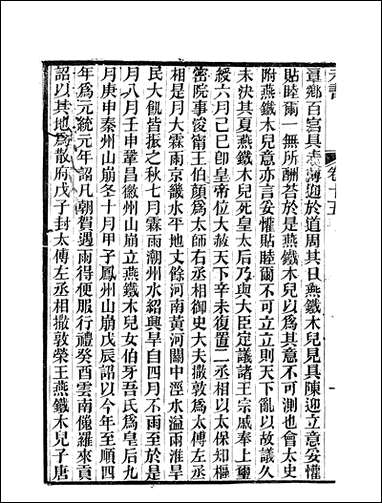 元書
卷十五
章鄉百官具鹵簿迎於道周其日燕鐵木兒見具陳迎立意妥懽
貼睦爾一無所酬荅於是燕鐵木兒以爲其意不可測也會太史
附燕鐵木兒意亦言妥懽貼睦爾不可立立則天下亂以故議久
未決其夏燕鐵木兒死皇太后乃與大臣定議諸王宗戚奉上璽
綬六月己巳卽皇帝位大赦天下辛未復置二丞相以太保知樞
密院事浚甯王伯顏爲太師右丞相御史大夫撒敦爲太傅左丞
相是月大霖雨京畿水平地丈餘河南黃河關中涇水溢兩淮旱
民大飢皆振之秋七月霖雨潮州水紹興旱自四月不雨至於是
月八月壬申鞏昌徽州山崩立燕鐵木兒女伯牙吾氏爲皇后九
月庚申秦州山崩冬十月甲子鳳州山崩戊辰詔以今年至順四
年爲元統元年詔凡朝賀遇雨得便服行禮癸酉雲南儸羅來貢
詔以其地爲散府戊子封太傅左丞相撒敦榮王燕鐵木兒子唐